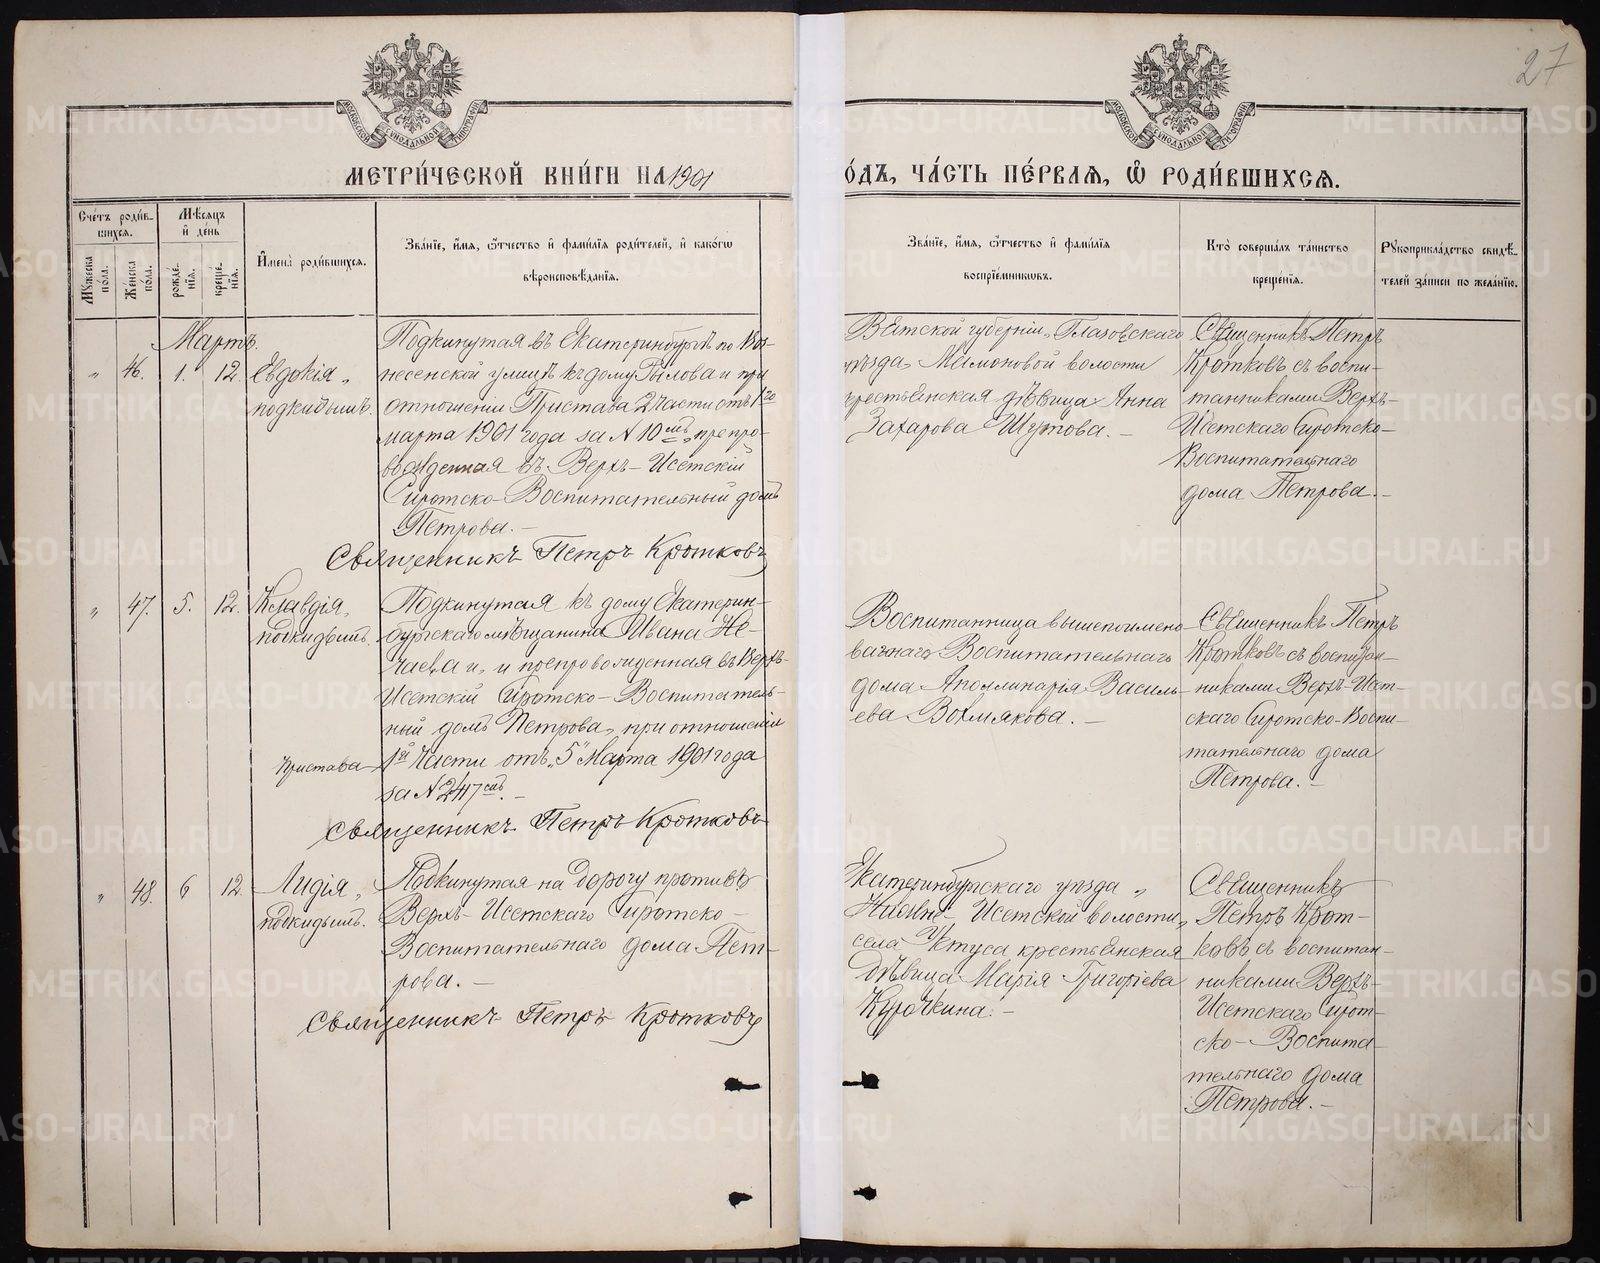 27
МОСКОВСКОЙ СѴНОДАЛЬНОЙ ТИПОГРАФІИ
МОСКОВСКОЙ СѴНОДАЛЬНОЙ ТИПОГРАФІИ
МЕТРИ́ЧЕСКОЙ КНИ́ГИ НА 1901
О́ДЪ, ЧА́СТЬ ПЕ́РВАѦ, Ѽ РОДИ́ВШИХСѦ.
Сче́тъ роди́в-
шихсѧ.
Мѣ́сѧцъ
и҆ де́нь
Мꙋ́жеска
по́ла.
Же́нска
по́ла.
рожде́-
нїѧ.
креще́-
нїѧ.
И҆мена̀ роди́вшихсѧ.
Зва́нїе, и҆́мѧ, ѻ҆́тчество и҆ фами́лїѧ роди́телей, и҆ како́гѡ
вѣроисповѣ́данїѧ.
Зва́нїе, и҆́мѧ, ѻ҆́тчество и҆ фами́лїѧ
воспрїе́мникѡвъ.
Кто̀ соверша́лъ та́инство
креще́нїѧ.
Рꙋкоприкла́дство свидѣ́-
телей за́писи по жела́нїю.
Мартъ.
" 46. 1. 12. Евдокія,
подкидышъ.
Подкинутая въ Екатеринбургѣ по Воз-
несенской улицѣ къ дому Рылова и при
отношеніи Пристава 2 части отъ 1го
марта 1901 года за № 10мъ, препро-
вожденная въ Верхъ-Исетскій
Сиротско-Воспитательный домъ
Петрова.-
Священникъ Петръ Кротковъ
Вятской губерніи, Глазовскаго
уѣзда, волости
крестьянская дѣвица Анна
Захарова Шутова.-
Священникъ Петръ
Кротковъ съ воспи-
танниками Верхъ-
Исетскаго Сиротско-
Воспитательнаго
дома Петрова.-
" 47. 5. 12. Клавдія,
подкидышъ.
Подкинутая къ дому Екатерин-
бургскаго мѣщанина Ивана Не-
чаева и препровожденная въ Верхъ-
Исетскій Сиротско-Воспитатель-
ный домъ Петрова, при отношеніи
Пристава 1й Части отъ "5" Марта 1901 года
за № 247смъ.-
Священникъ Петръ Кротковъ
Воспитанница вышепоимено-
ваннаго Воспитательнаго
дома Аполлинарія Василь-
ева Вохмякова.-
Священникъ Петръ
Кротковъ съ воспитан-
никами Верхъ-Исет-
скаго Сиротско-Воспи-
тательнаго дома
Петрова.-
" 48. 6 12. Лидія,
подкидышъ.
Подкинутая на дорогу противъ
Верхъ-Исетскаго Сиротско-
Воспитательнаго дома Пет-
рова.-
Священникъ Петръ Кротковъ
Екатеринбургскаго уѣзда,
Нижне-Исетской волости,
села Уктуса крестьянская
дѣвица Марія Григоріева
Курочкина.-
Священникъ
Петръ Крот-
ковъ съ воспитан-
никами Верхъ-
Исетскаго Сирот-
ско-Воспита-
тельнаго дома
Петрова.-
METRIKI.GASO-URAL.RU